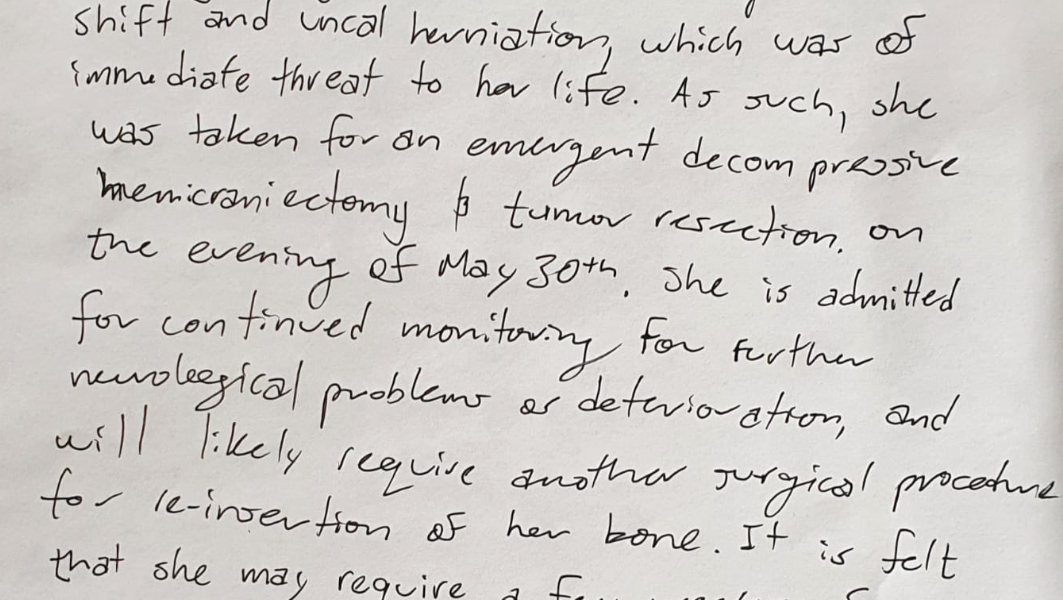 shift and uncal herniation, which was of
immediate threat to her life. As such, she
was taken for an emergent decompressive
hemicraniectomy & tumor resection, on
the evening of May 30th. She is admitted
for continued monitoring for further
neurological problems or deterioration, and
will likely require another surgical procedure
for re-insertion of her bone. It is felt
that she may require a